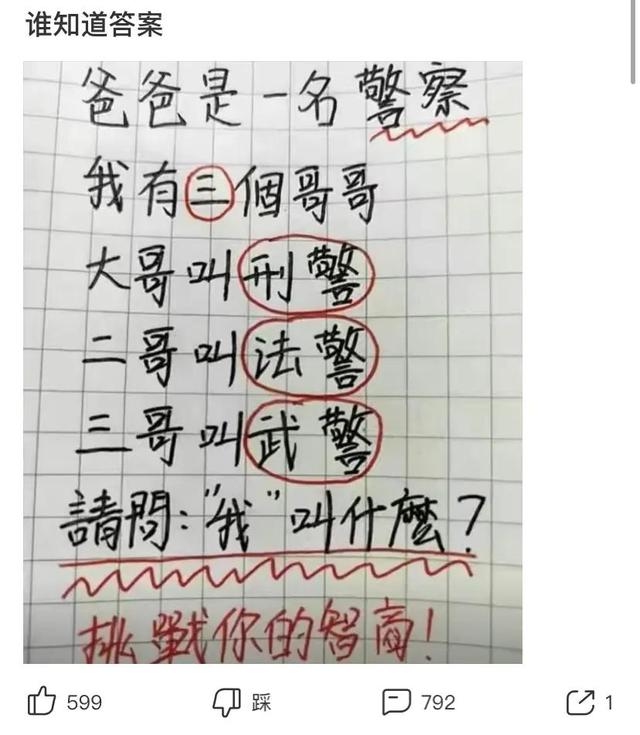 谁知道答案
爸爸是一名警察
我有三個哥哥
大哥叫刑警
二哥叫法警
三哥叫武警
請問:“我”叫什麼?
挑戰你的智商!
599
踩
792
1